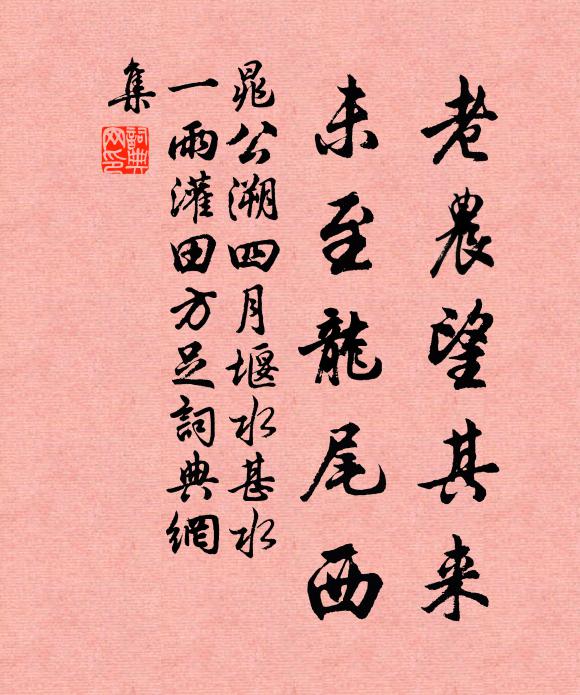 老農望其来
未至龍尾西
晁公溯四月堰水甚水
一雨灌田方足詞典網
集
詞典
网印